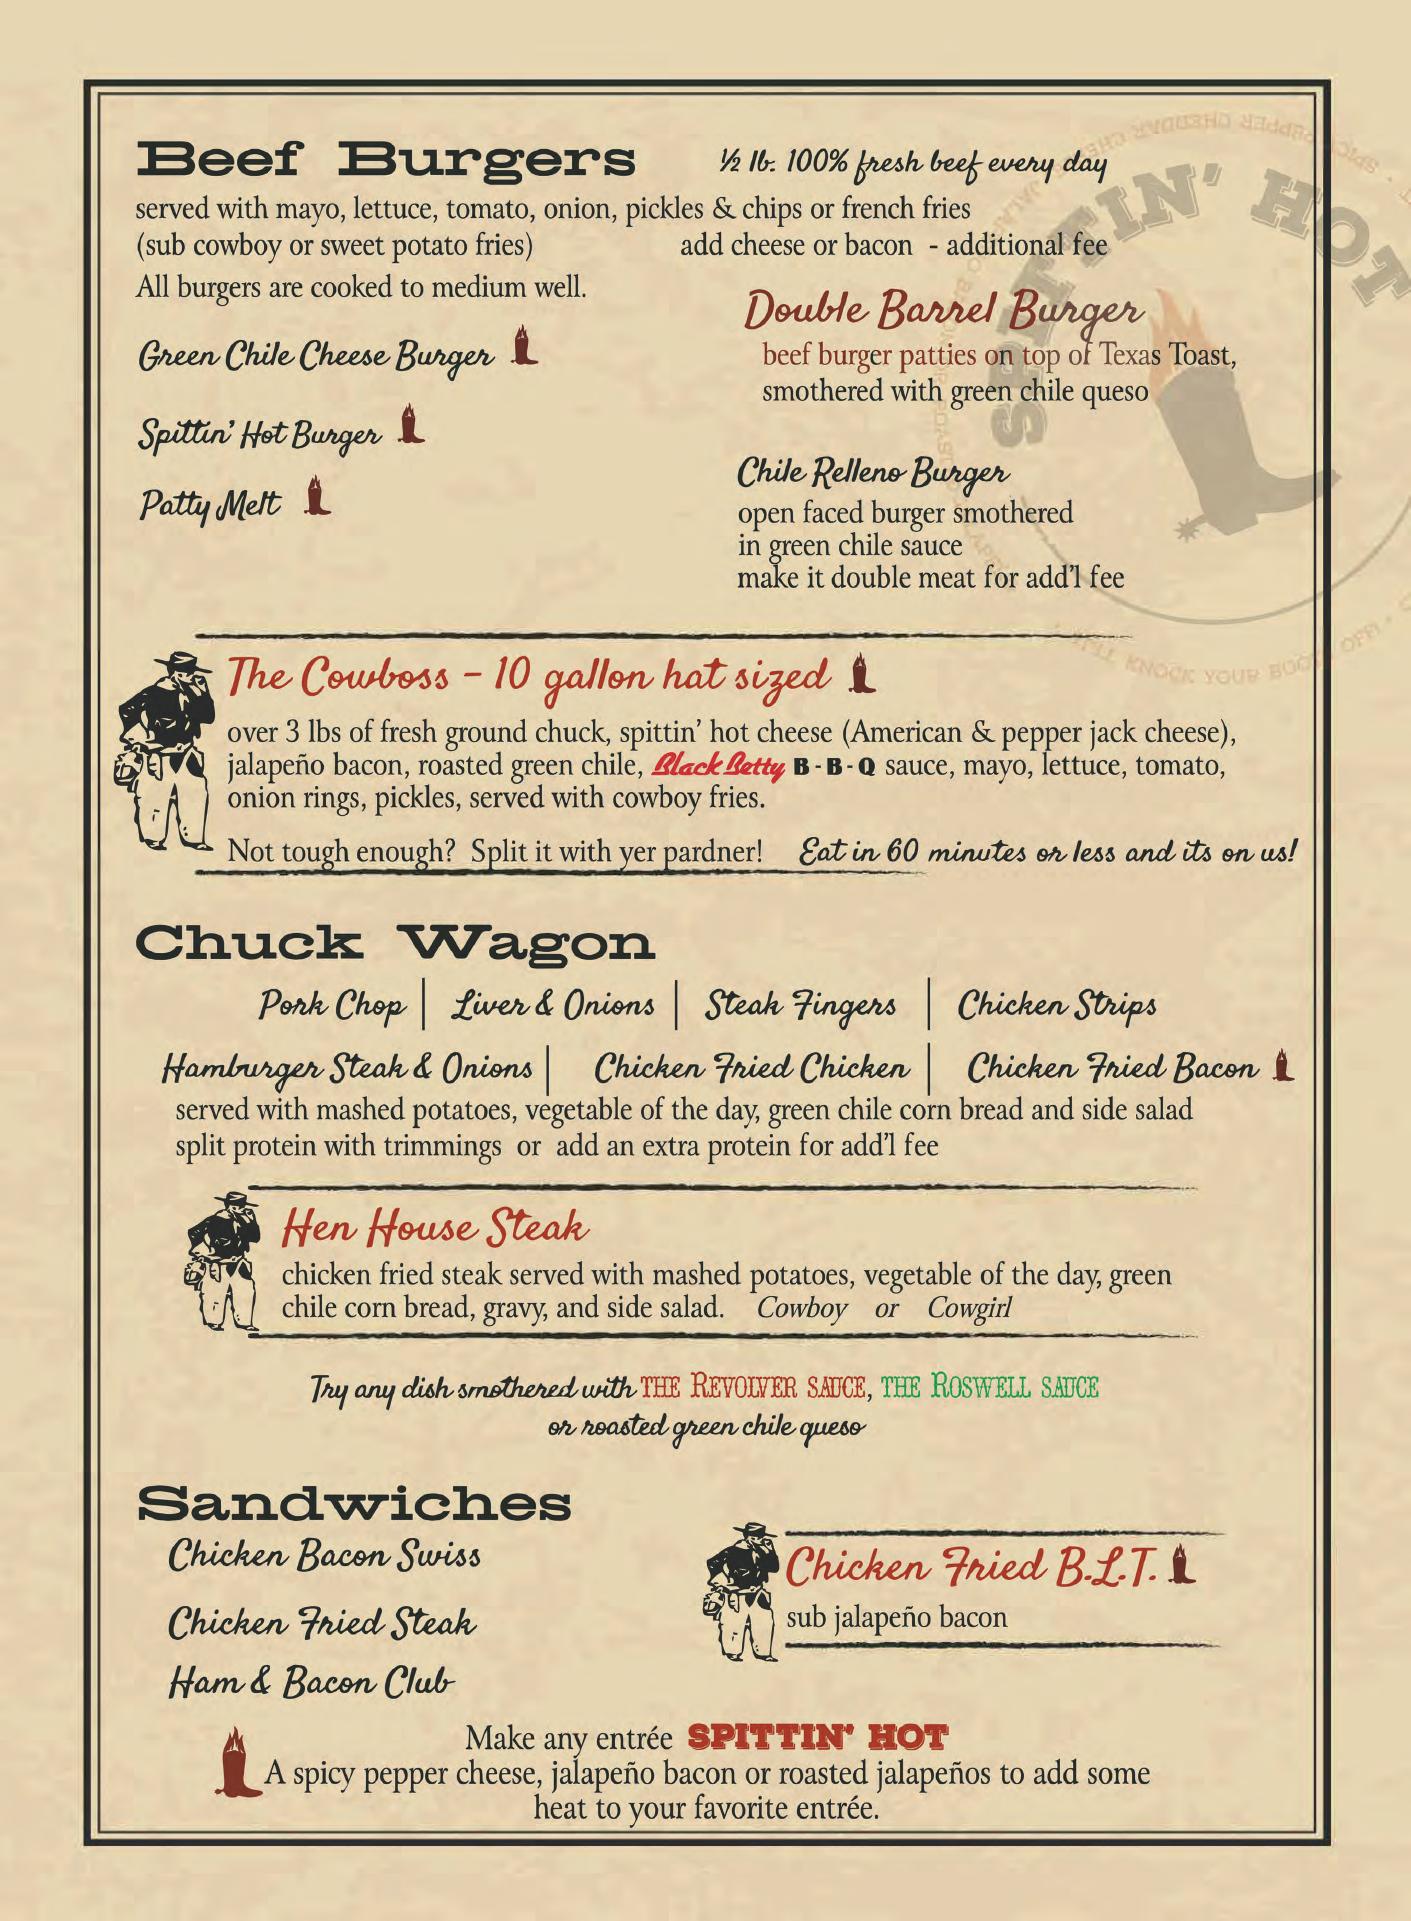 Beef Burgers
½ lb. 100% fresh beef every day
served with mayo, lettuce, tomato, onion, pickles & chips or french fries
(sub cowboy or sweet potato fries)
add cheese or bacon - additional fee
All burgers are cooked to medium well.
Green Chile Cheese Burger
Spittin' Hot Burger
Patty Melt
Double Barrel Burger
beef burger patties on top of Texas Toast,
smothered with green chile queso
Chile Relleno Burger
open faced burger smothered
in green chile sauce
make it double meat for add'l fee
SPITTIN' HOT
KNOCK YOUR BOOTS OFF!
The Cowboss - 10 gallon hat sized
over 3 lbs of fresh ground chuck, spittin' hot cheese (American & pepper jack cheese),
jalapeño bacon, roasted green chile, Black Betty B-B-Q sauce, mayo, lettuce, tomato,
onion rings, pickles, served with cowboy fries.
Not tough enough? Split it with yer pardner! Eat in 60 minutes or less and its on us!
Chuck Wagon
Pork Chop | Liver & Onions | Steak Fingers | Chicken Strips
Hamburger Steak & Onions | Chicken Fried Chicken | Chicken Fried Bacon
served with mashed potatoes, vegetable of the day, green chile corn bread and side salad
split protein with trimmings or add an extra protein for add'l fee
Hen House Steak
chicken fried steak served with mashed potatoes, vegetable of the day, green
chile corn bread, gravy, and side salad. Cowboy or Cowgirl
Try any dish smothered with THE REVOLVER SAUCE, THE ROSWELL SAUCE
or roasted green chile queso
Sandwiches
Chicken Bacon Swiss
Chicken Fried Steak
Ham & Bacon Club
Chicken Fried B.L.T.
sub jalapeño bacon
Make any entrée SPITTIN' HOT
A spicy pepper cheese, jalapeño bacon or roasted jalapeños to add some
heat to your favorite entrée.